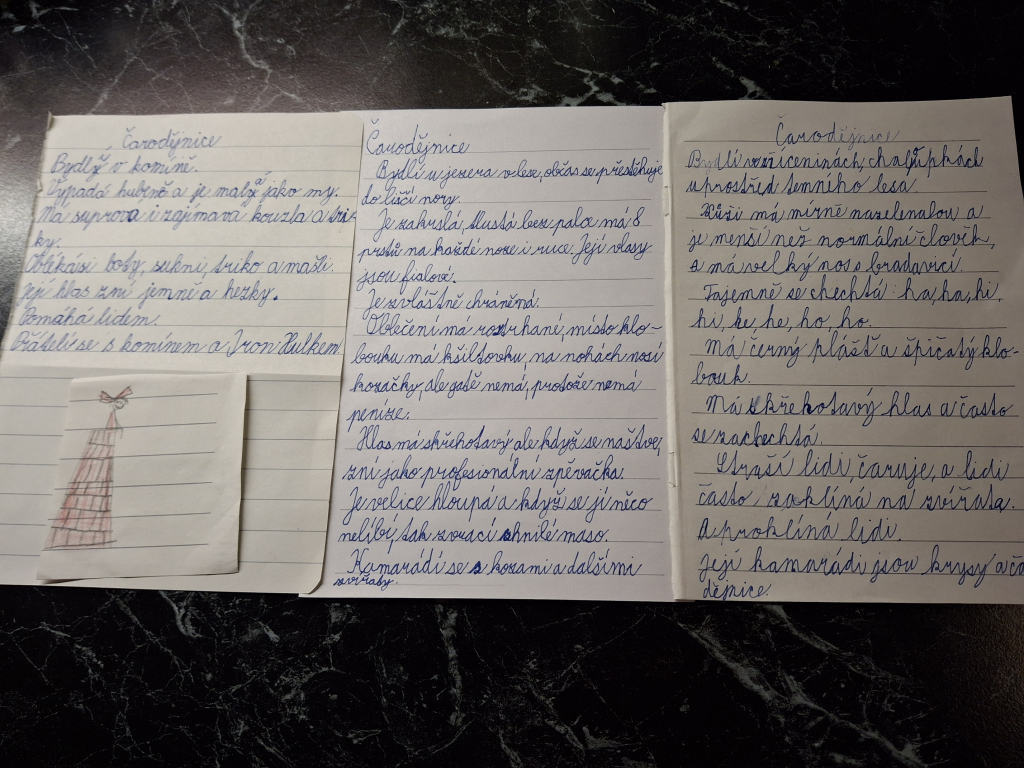 Čarodějnice
Bydlí v komíně.
Vypadá hubeně a je malá jako my.
Má suprová i zajímavá kouzla a tri-
ky.
Obléká si boty, sukni, triko a mašli.
Její hlas zní jemně a hezky.
Pomáhá lidem.
Přátelí se s komínem a Iron Hulkem
Čarodějnice
Bydlí u jezera v lese, občas se přestěhuje
do liščí nory.
Je zakrslá, tlustá bez palce má 8
prstů na každé noze i ruce. Její vlasy
jsou fialové.
Je zvláštně chráněná.
Oblečení má roztrhané, místo klo-
bouku má kšiltovku, na nohách nosí
kozačky, ale gatě nemá, protože nemá
peníze.
Hlas má skřehotavý ale když se naštve,
zní jako profesionální zpěvačka.
Je velice hloupá a když se jí něco
nelíbí, tak zvrací shnilé maso.
Kamarádí se s kozami a dalšími
zvířaty.
Čarodějnice
Bydlí v zříceninách, chalupkách
uprostřed temního lesa.
Kůži má mírně nazelenalou a
je menší než normální člověk,
a má velký nos s bradavicí.
Tajemně se chechtá: ha, ha, hi,
hi, he, he, ho, ho.
Má černý plášť a špičatý klo-
bouk.
Má skřehotavý hlas a často
se zachechtá.
Straší lidi, čaruje, a lidi
často zaklíná na zvířata.
A proklíná lidi.
Její kamarádi jsou krysy a ča
dějnice.